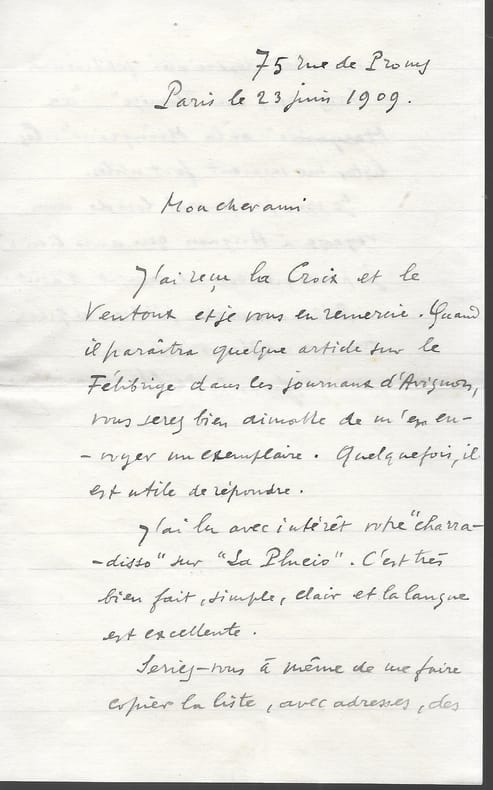 75 rue de Prony
Paris le 23 juin 1909.
Mon cher ami
J'ai reçu la Croix et le
Ventoux et je vous en remercie. Quand
il paraîtra quelque article sur le
Félibrige dans les journaux d'Avignon,
vous serez bien aimable de m'en en-
-voyer un exemplaire. Quelquefois, il
est utile de répondre.
J'ai lu avec intérêt votre "charra-
-disso" sur "La Plueio". C'est très
bien fait, simple, clair et la langue
est excellente.
Seriez-vous à même de me faire
copier la liste, avec adresses, des